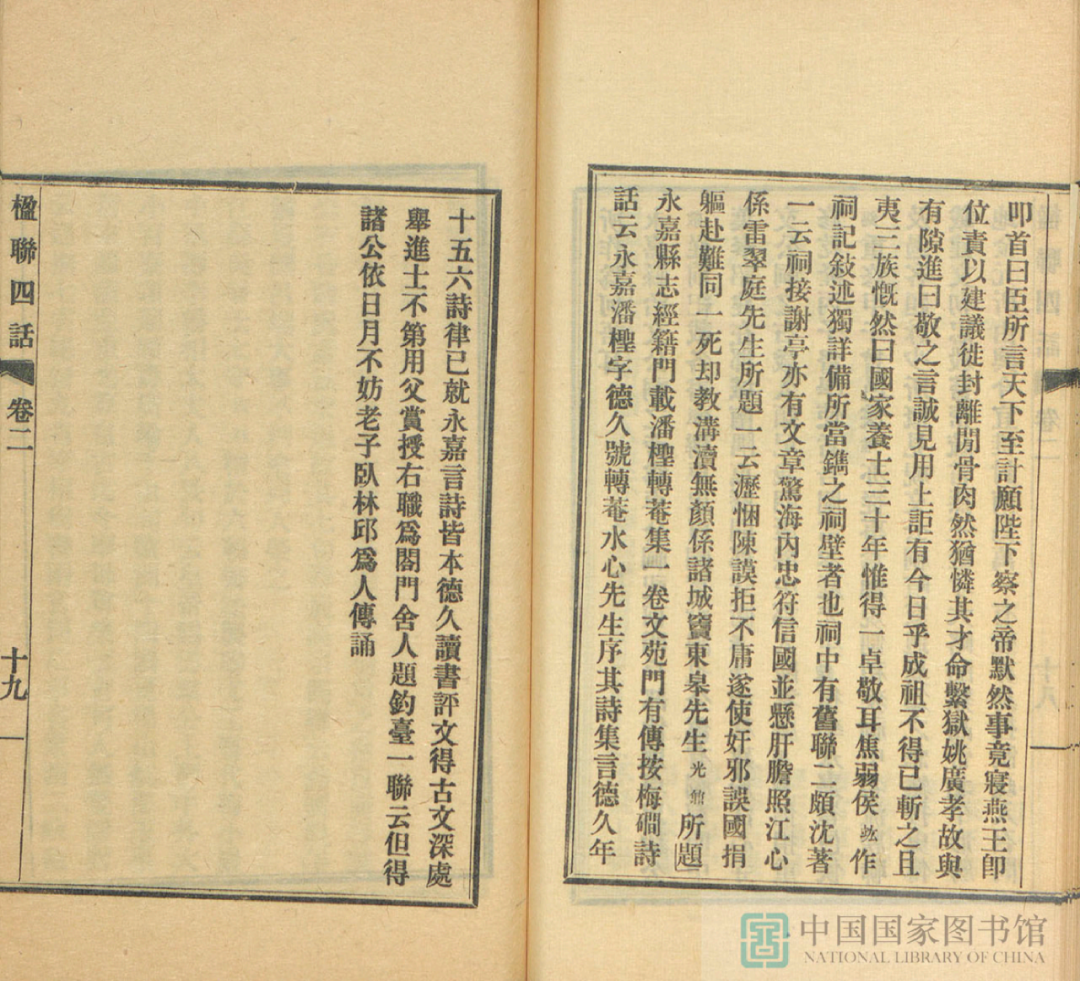 叩首曰臣所言天下至計願陛下察之帝默然事竟寢燕王卽
位責以建議徙封離閒骨肉然猶憐其才命繫獄姚廣孝故與
有隙進曰敬之言誠見用上詎有今日乎成祖不得已斬之且
夷三族慨然曰國家養士三十年惟得一卓敬耳焦弱侯竑作
祠記敍述獨詳備所當鐫之祠壁者也祠中有舊聯二頗沈著
一云祠接謝亭亦有文章驚海內忠符信國並懸肝膽照江心
係雷翠庭先生所題一云瀝悃陳謨拒不庸遂使奸邪誤國捐
軀赴難同一死却教溝瀆無顏係諸城竇東皋先生光鼐所題
永嘉縣志經籍門載潘檉轉菴集一卷文苑門有傳按梅磵詩
話云永嘉潘檉字德久號轉菴水心先生序其詩集言德久年
十五六詩律已就永嘉言詩皆本德久讀書評文得古文深處
舉進士不第用父賞授右職爲閤門舍人題釣臺一聯云但得
諸公依日月不妨老子臥林邱爲人傳誦
楹聯四話 卷二 十九
中国国家图书馆
NATIONAL LIBRARY OF CHINA